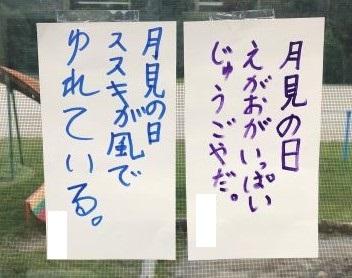 月見の日
えがおがいっぱい
じゅうごやだ。
月見の日
ススキが風で
ゆれている。